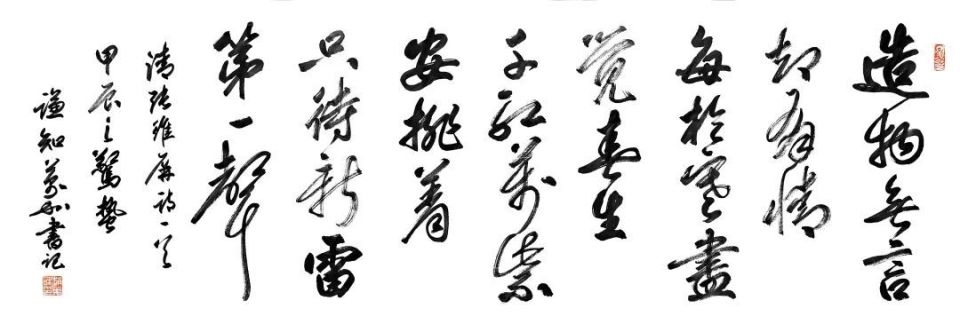 造物無言
却有情
每於寒盡
覺春生
千紅萬紫
安排着
只待新雷
第一聲
清張維屏詩一首
甲辰之驚蟄
謙知 書記